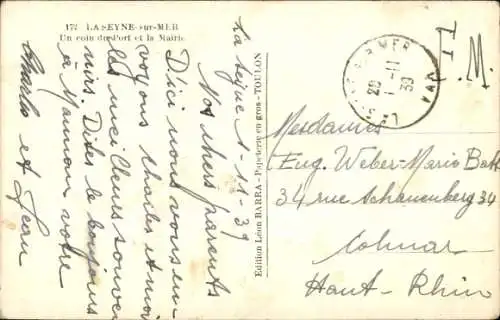 172 LA SEYNE-sur-MER
Un coin du Port et la Mairie
La Seyne 1-11-39
Nos chers parents
D'ici nous vous en-
voyons Charles et moi
les meilleurs souve-
nirs. Dites le bonjour
à Maman votre
Charles et Jean
Edition Léon BARRA - Papeterie en gros - TOULON
SUR MER
20
1-11
39
VAR
F.M.
Mesdames
Eug. Weber-Mario Batt
34 rue Schauenberg 34
Colmar
Haut-Rhin